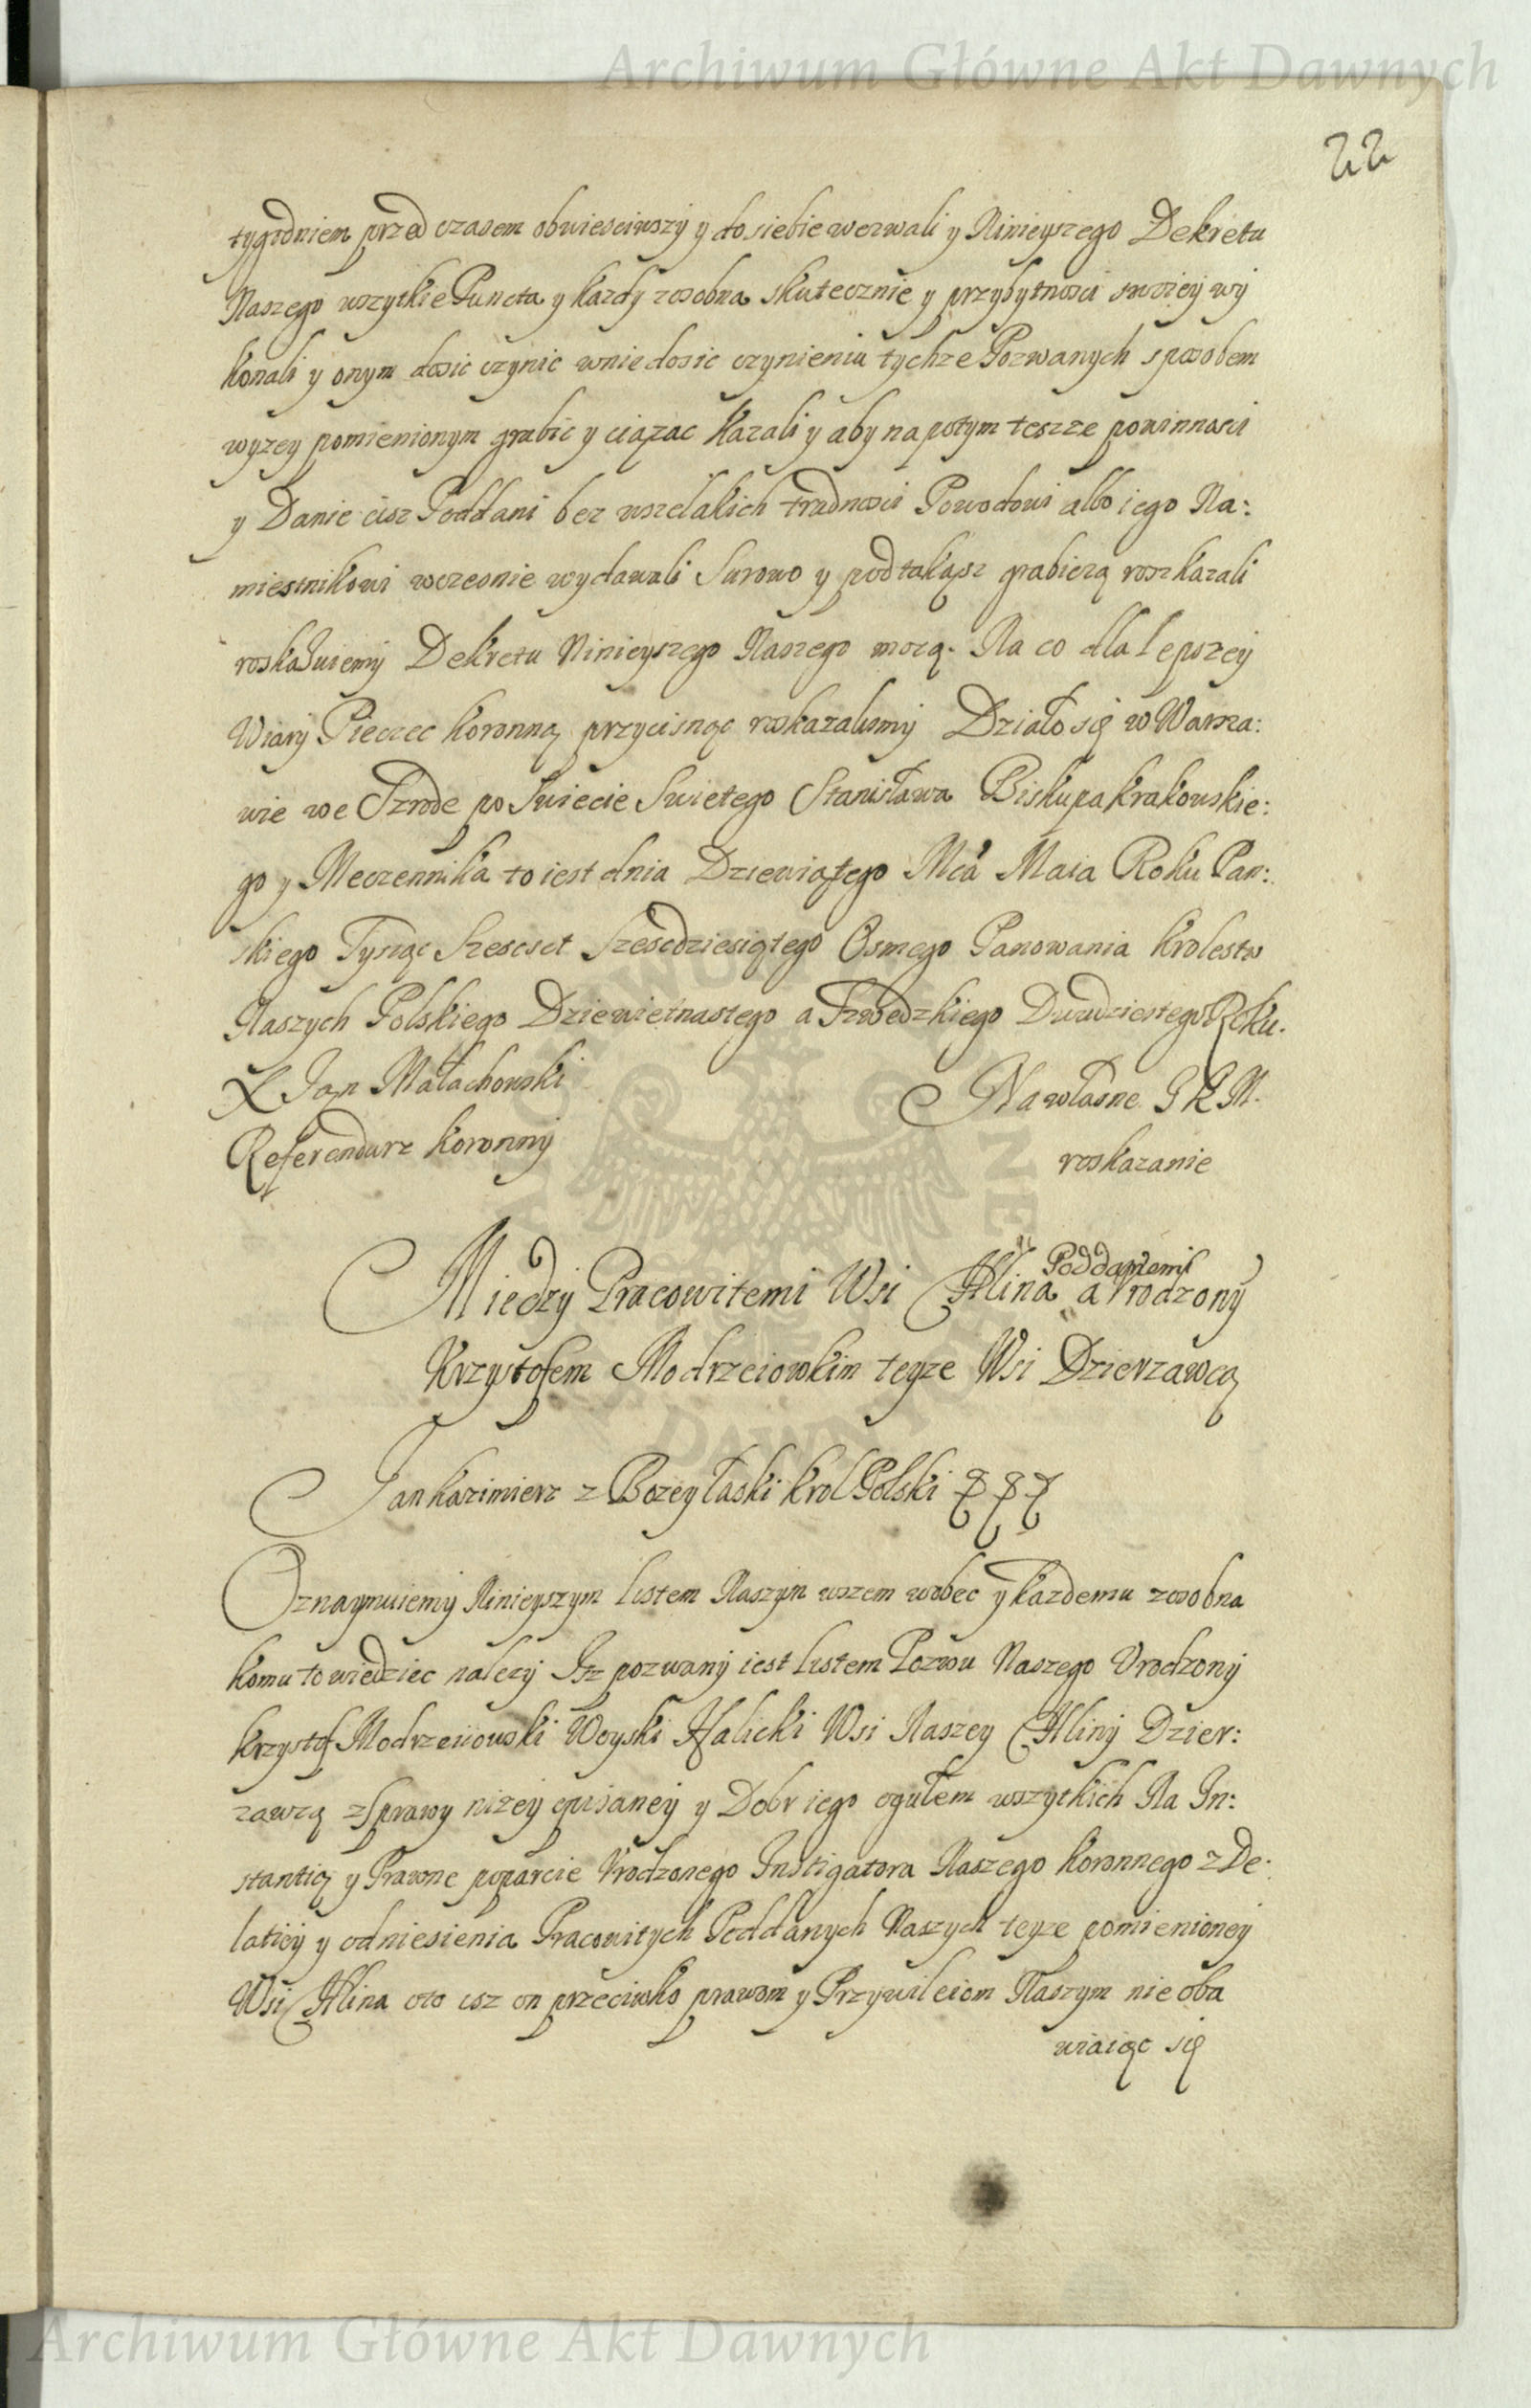 Archiwum Główne Akt Dawnych
22
tygodniem przed czasem obwiesciwszy y do siebie wezwali y Ninieyszego Dekretu
Naszego wszytkie Puncta y kazdy zosobna skutecznie y przybytnosci swoiey wy
konali y onym dosic czynic wniedosic czynieniu tychze Pozwanych sposobem
wyzey pomienionym grabic y ciązac kazali y aby napotym teszze powinnosci
y Danie cisz Poddani bez wszelakich trudnosci Powodowi albo iego Na:
miestnikowi wczesnie wydawali Surowo y pod takąsz grabieżą roszkazali
roskaſuiemy Dekretu Ninieyszego Naszego mocą. Na co dla lepszey
Wiary Pieczec koronną przycisnąc roskazalismy Działo się w Warsza:
wie we Szrode po Swiecie Swietego Stanisława Biskupa krakowskie:
go y Meczennika to iest dnia Dziewiątego Mca Maia Roku Pan:
skiego Tysiąc Szescset Szescdziesiątego Osmego Panowania krolestw
Naszych Polskiego Dziewietnastego a Szwedzkiego Dwudziestego Roku.
X Jan Małachowski
Na własne J K M.
Referendarz koronny
roskazanie
Miedzy Pracowitemi Wsi Hlina Poddanemi a Vrodzony
Krzysztofem Modrzeiowkim teyze Wsi Dzierzawcą
Jan kazimierz z Bozey łaski krol Polski
Oznaymuiemy Ninieyszym listem Naszym wszem wobec y kazdemu zosobna
komu to wiedziec nalezy Isz pozwany iest listem Pozwu Naszego Vrodzony
krzysztof Modrzeiowski Woyski Halicki Wsi Naszey Hliny Dzier:
zawcą z Sprawy nizey opisaney y Dobr iego ogułem wszytkich Na In:
stantią y Prawne poparcie Vrodzonego Instigatora Naszego koronnego z De:
latiey y odniesienia Pracowitych Poddanych Naszych teyze pomienioney
Wsi Hlina oto isz on przeciwko prawom y Przywileiom Naszym nie oba
wiaiąc się
Archiwum Główne Akt Dawnych